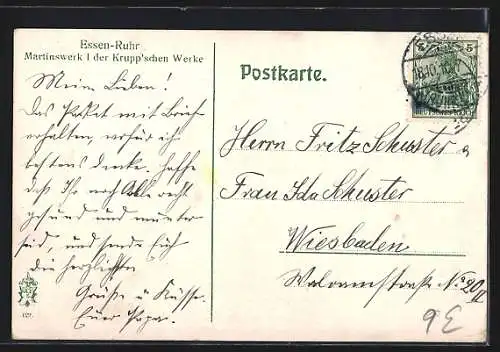 Essen-Ruhr
Martinswerk I der Krupp'schen Werke
Meine Lieben!
Das Packet mit Brief
erhalten, wofür ich
bestens danke. Hoffe
daß Ihr noch Alle recht
gesund und munter
seid, und sende Euch
die herzlichsten
Grüße u Küsse.
Euer Papa.
Postkarte.
5 5
18.10.10.
DEUTSCHES REICH
Herrn Fritz Schuster u
Frau Ida Schuster
Wiesbaden
Walramstraße No 20 II
9E